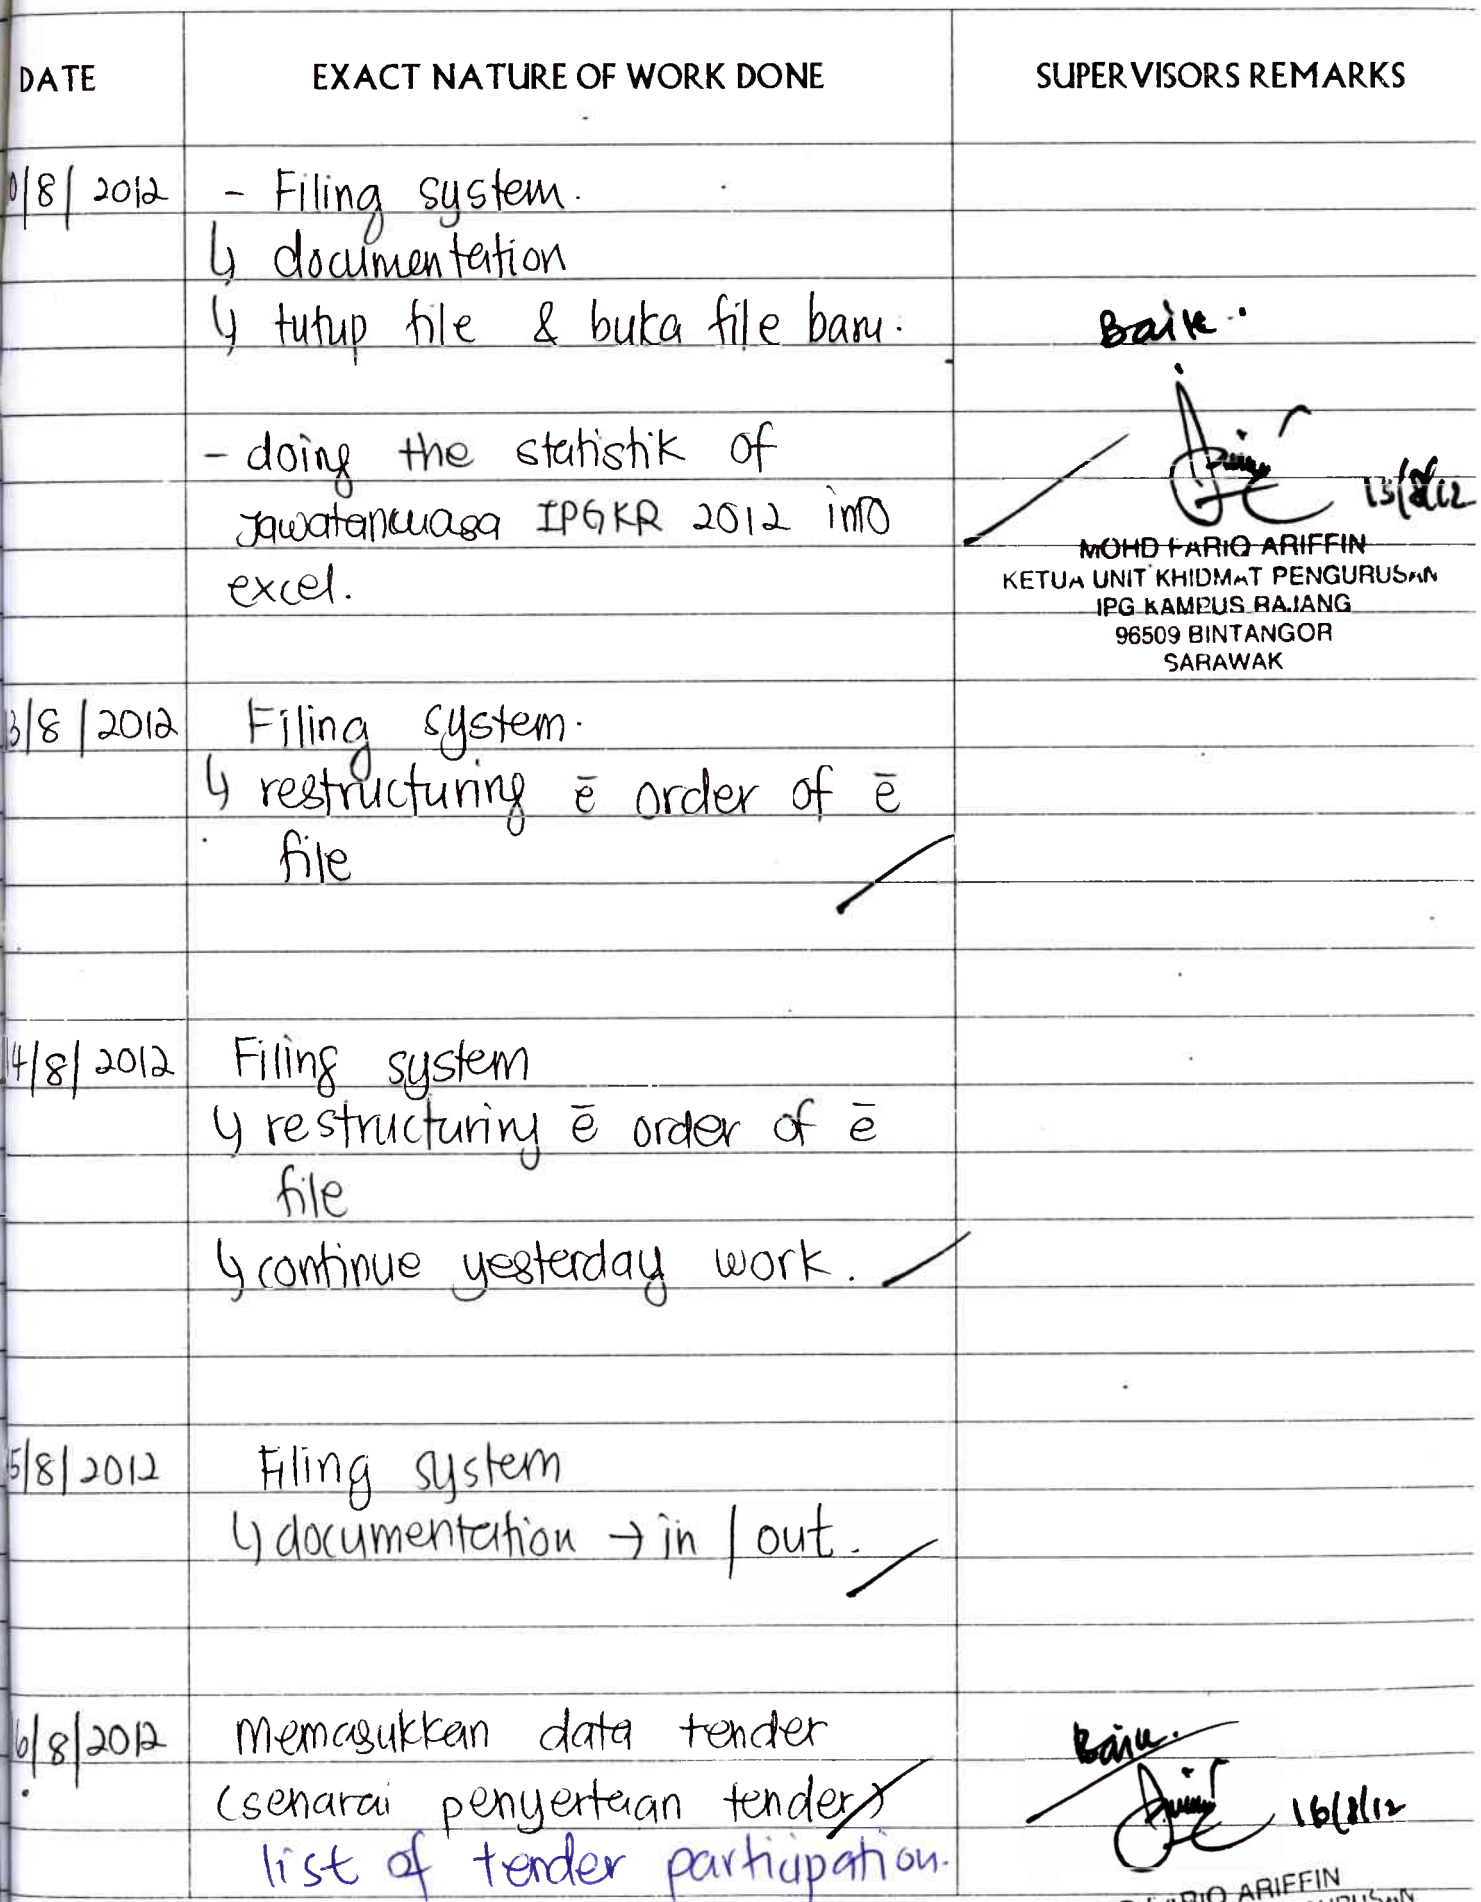 DATE EXACT NATURE OF WORK DONE SUPERVISORS REMARKS
0/8/2012 - Filing system.
↳ documentation
↳ tutup file & buka file baru. Baik..
- doing the statistik of
Jawatankuasa IPGKR 2012 into 13/8/12
excel.
MOHD FARIQ ARIFFIN
KETUA UNIT KHIDMAT PENGURUSAN
IPG KAMPUS RAJANG
96509 BINTANGOR
SARAWAK
3/8/2012 Filing system.
↳ restructuring ē order of ē
file
14/8/2012 Filing system
↳ restructuring ē order of ē
file
↳ continue yesterday work.
5/8/2012 Filing system
↳ documentation → in / out.
6/8/2012 Memasukkan data tender Baik.
(senarai penyertaan tender) 16/8/12
list of tender participation.
ARIFFIN